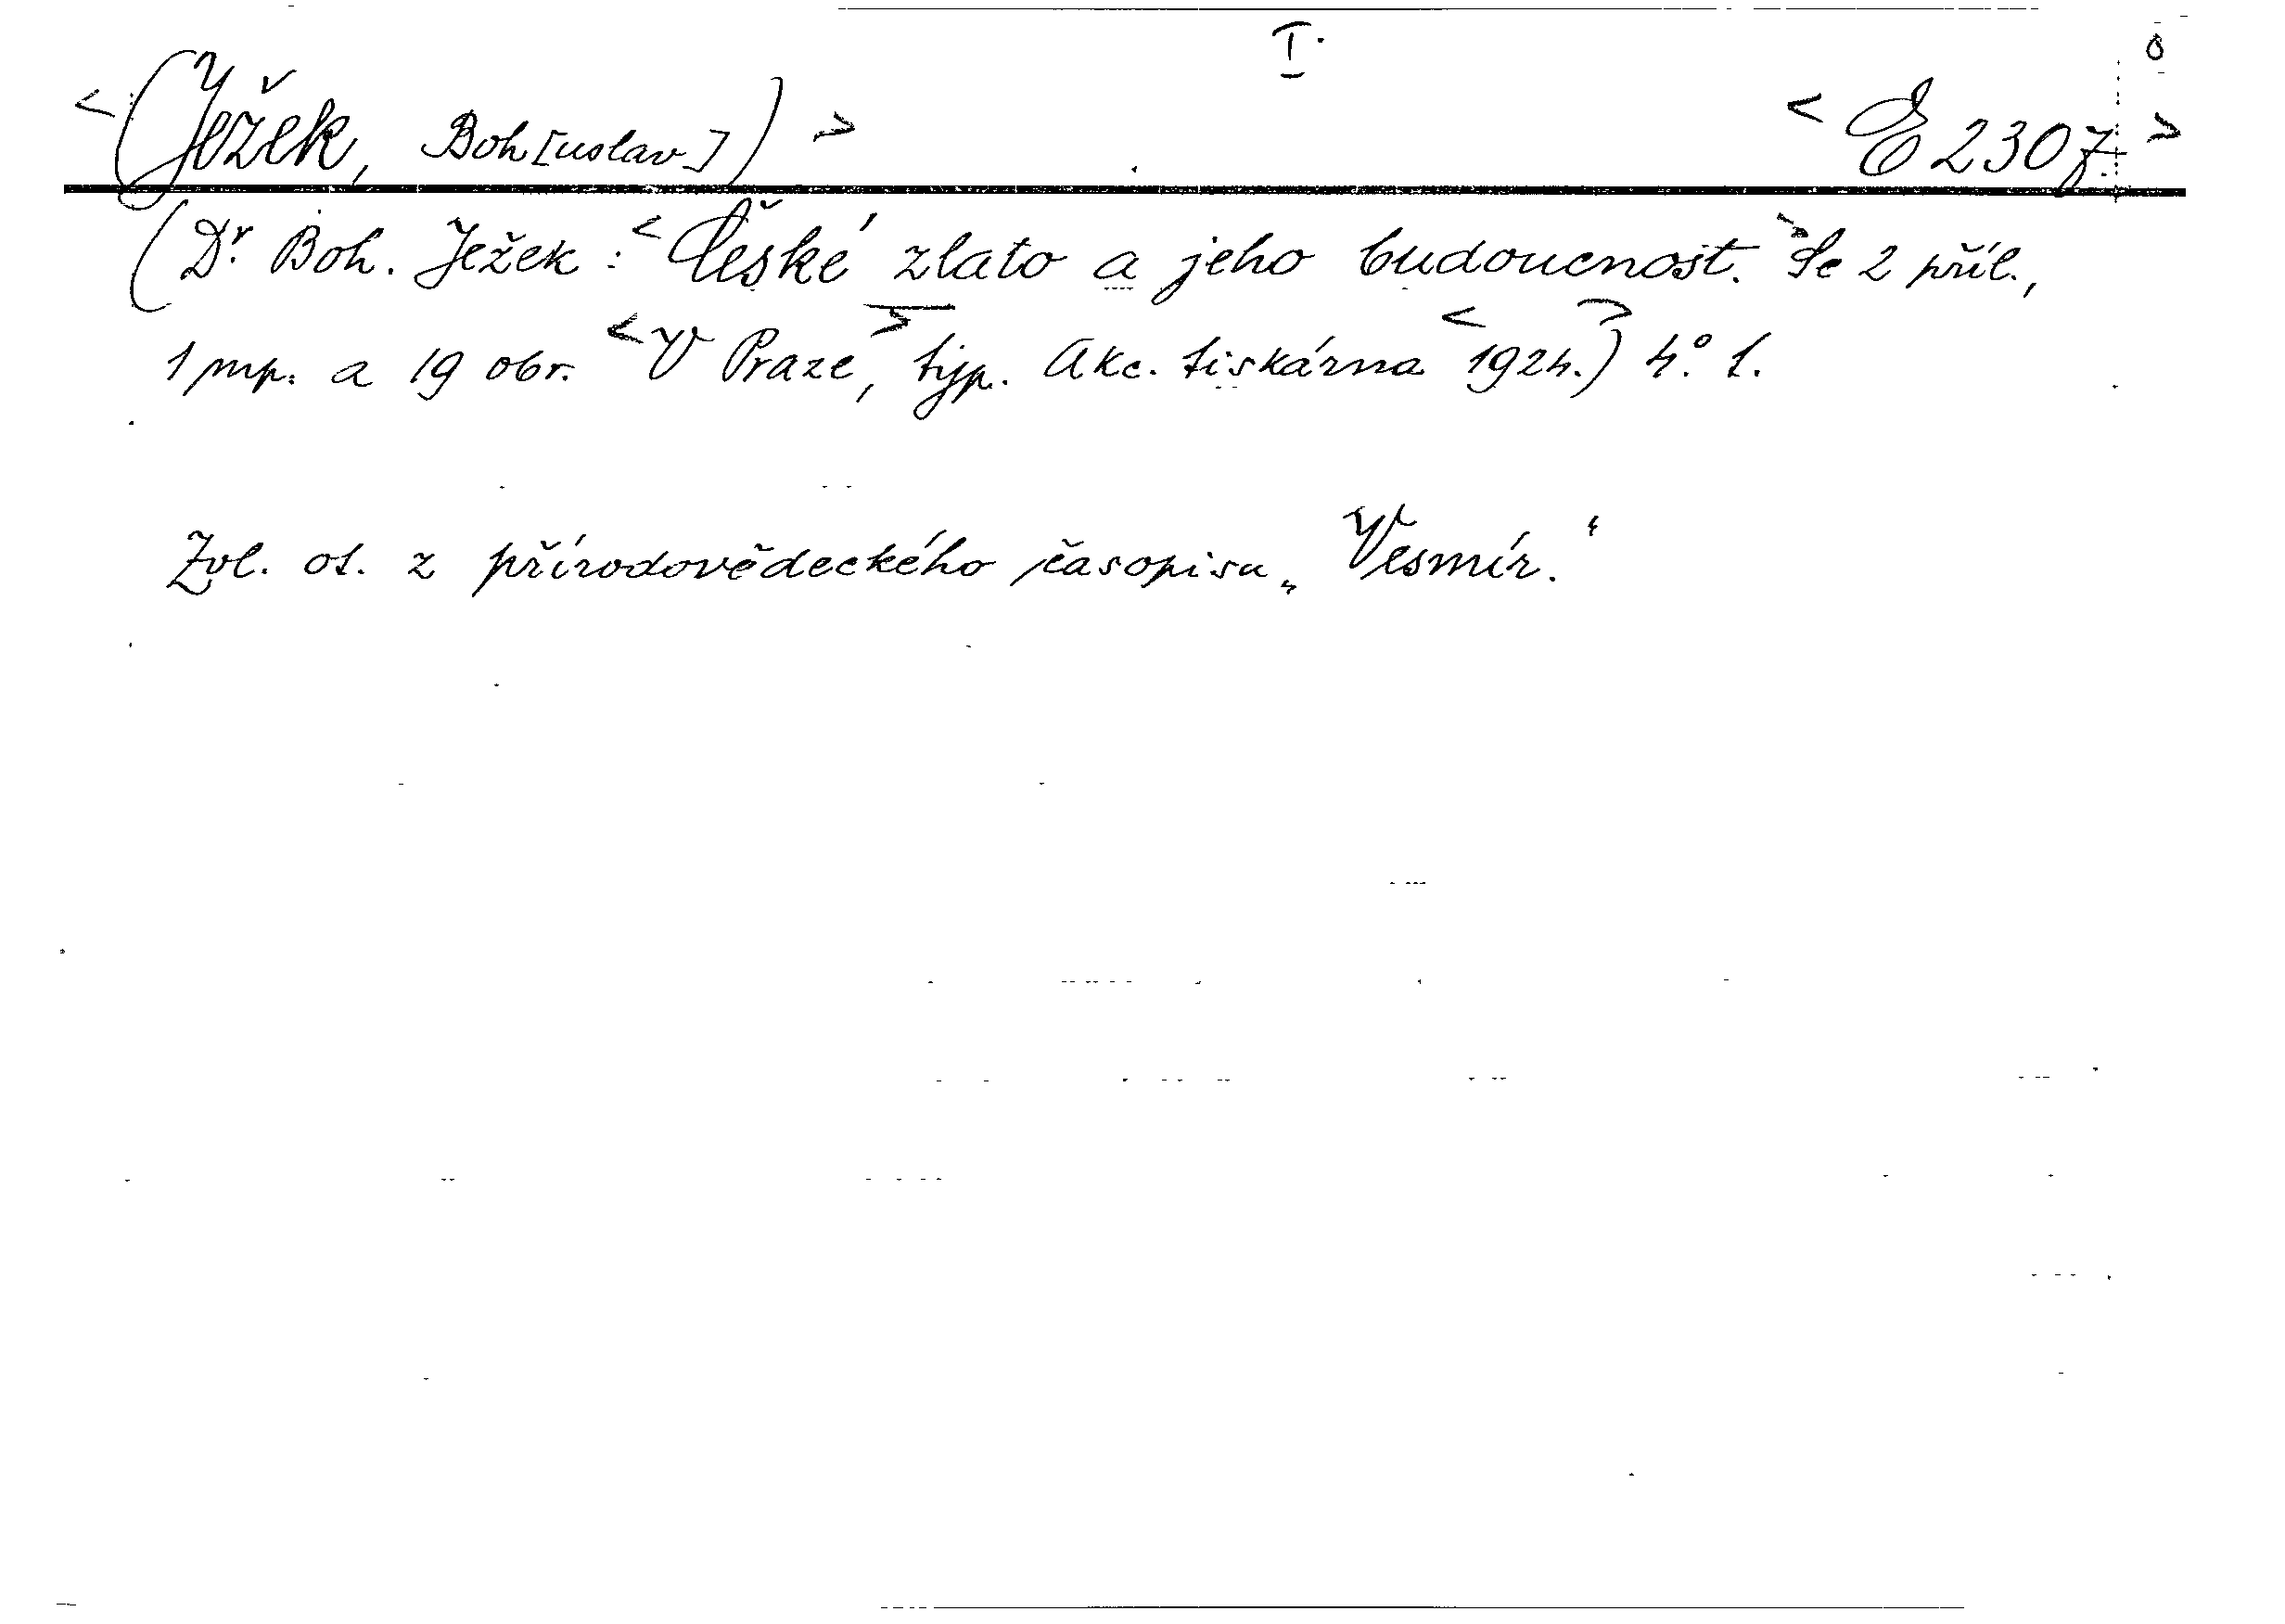 I.
<(Ježek, Boh[uslav])> <E 2307>
(Dr. Boh. Ježek: <České zlato a jeho budoucnost.> Se 2 příl.,
1 mp. a 19 obr. <V Praze,> typ. Akc. tiskárna <1924.>) 4.° 1.
Zvl. ot. z přírodovědeckého časopisu „Vesmír.“